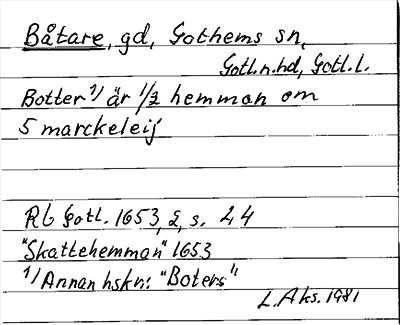 Båtare, gd, Gothems sn,
Gotl.n.hd, Gotl.l.
Botter 1/ är 1/2 hemman om
5 marckeleij
Rb Gotl. 1653, 2, s. 24
"Skattehemman" 1653
1/ Annan hskr: "Boters"
L.Aks. 1981